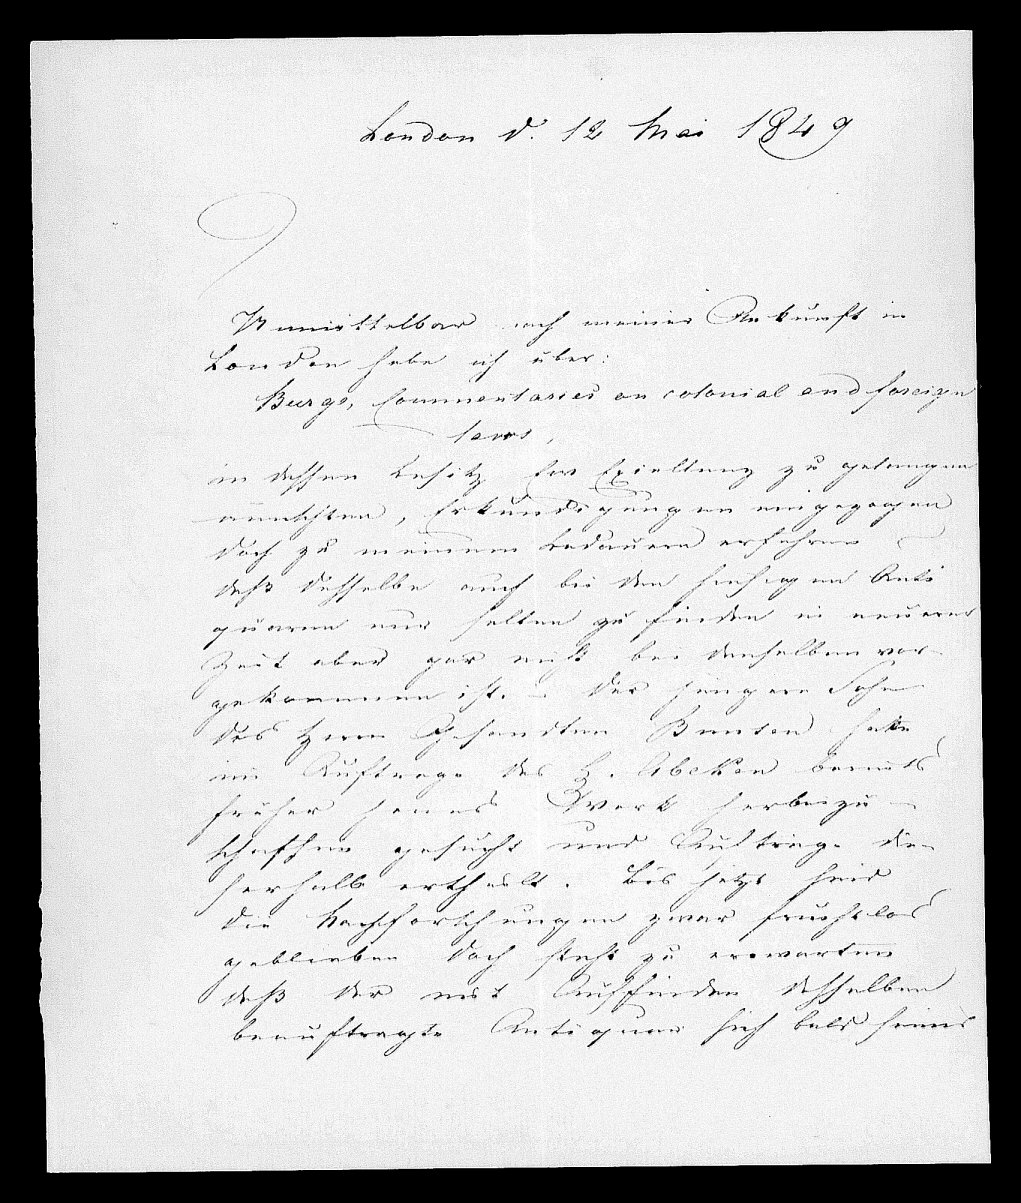 London d. 12 Mai 1849
Unmittelbar nach meiner Ankunft in
London habe ich über:
Burge, Commentaries on colonial and foreign
laws,
in dessen Besitz Ew Excellenz zu gelangen
wünschten, Erkundigungen eingezogen
doch zu meinem Bedauern erfahren
daß dasselbe auch bei den hiesigen Anti
quaren nur selten zu finden in neuerer
Zeit aber gar nicht bei denselben vor-
gekommen ist. – Der jüngere Sohn
des Herrn Gesandten Bunsen hatte
im Auftrage des H. Abeken bereits
früher jenes Werk herbeizu-
schaffen gesucht und Aufträge die-
serhalb ertheilt. Bis jetzt sind
die Nachforschungen zwar fruchtlos
geblieben doch steht zu erwarten
daß der mit Auffinden desselben
beauftragte Antiquar sich bald seines